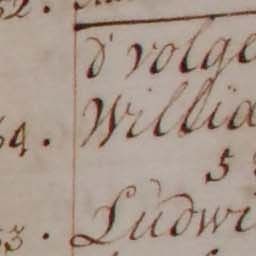 52.
d' volge
64. Willia
5
53. Ludwi